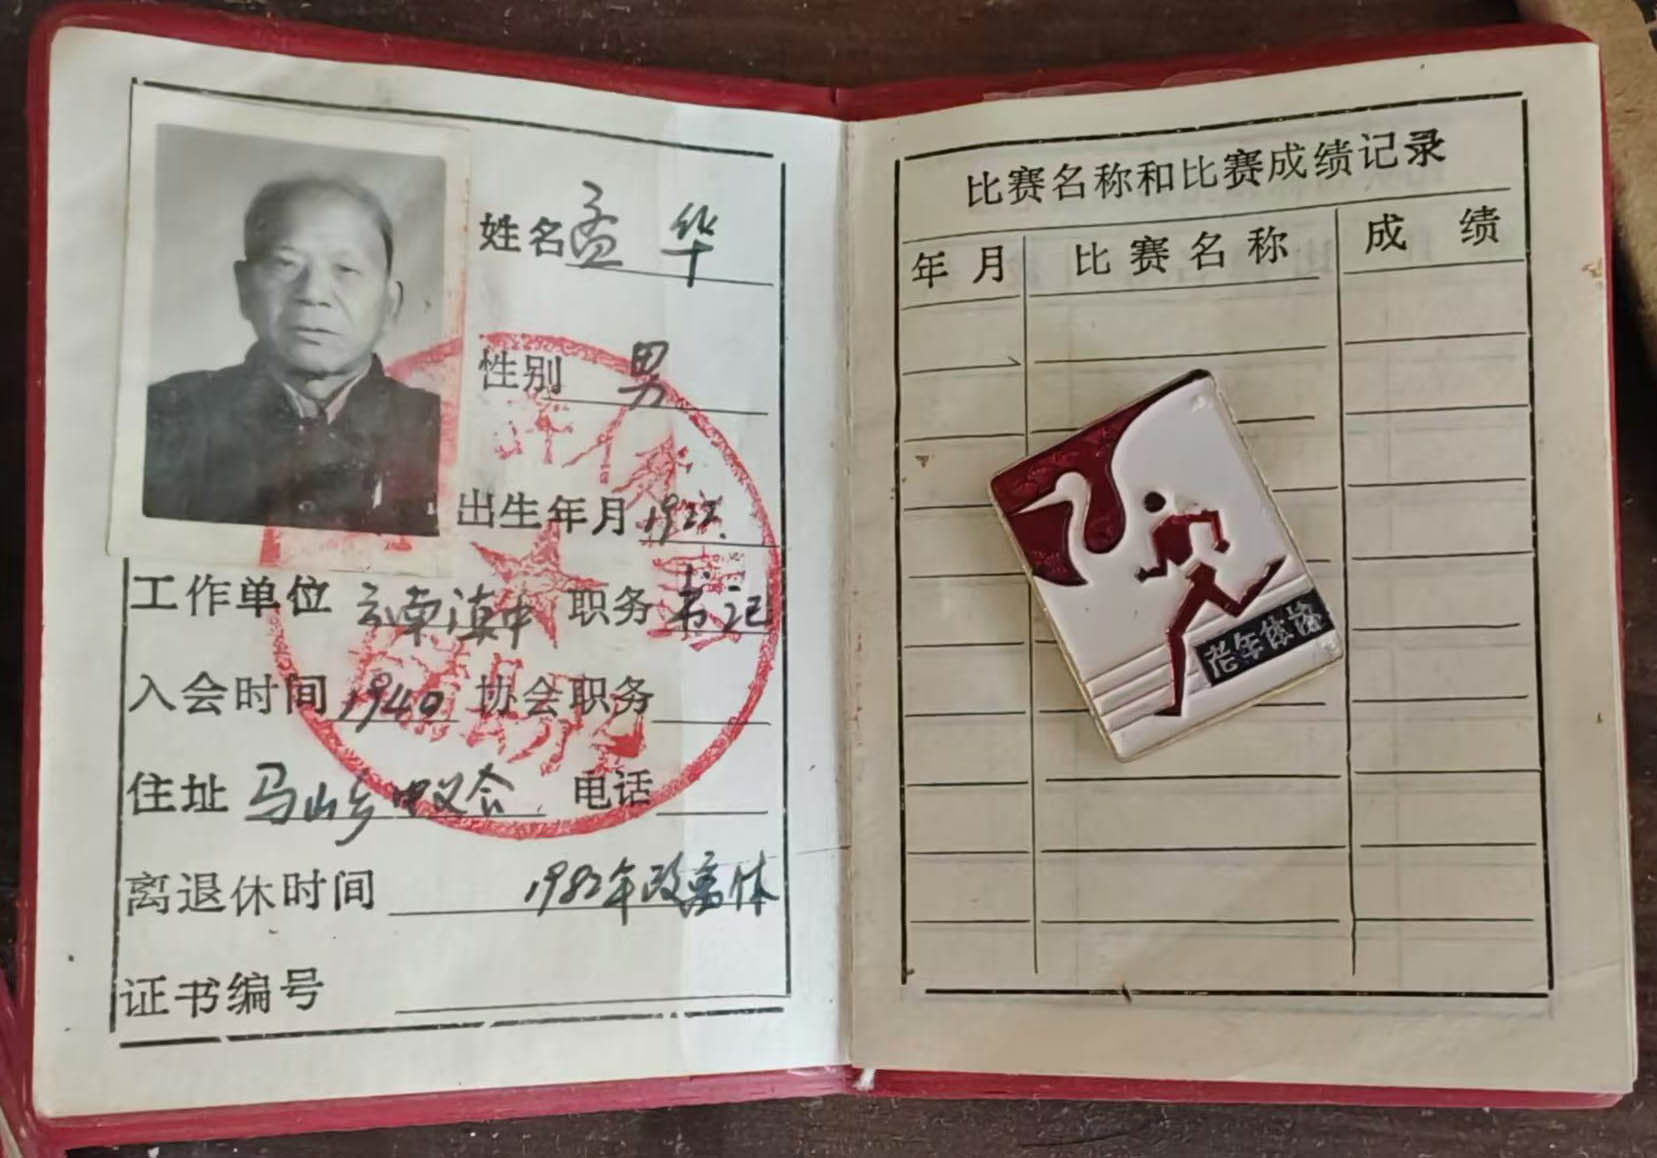 姓名 孟 华
性别 男
出生年月 1922.
工作单位 云南滇中 职务 书记
入会时间 1940 协会职务
住址 马山乡中义合 电话
离退休时间 1982年改离休
证书编号
比赛名称和比赛成绩记录
年 月 比赛名称 成 绩
老年体协